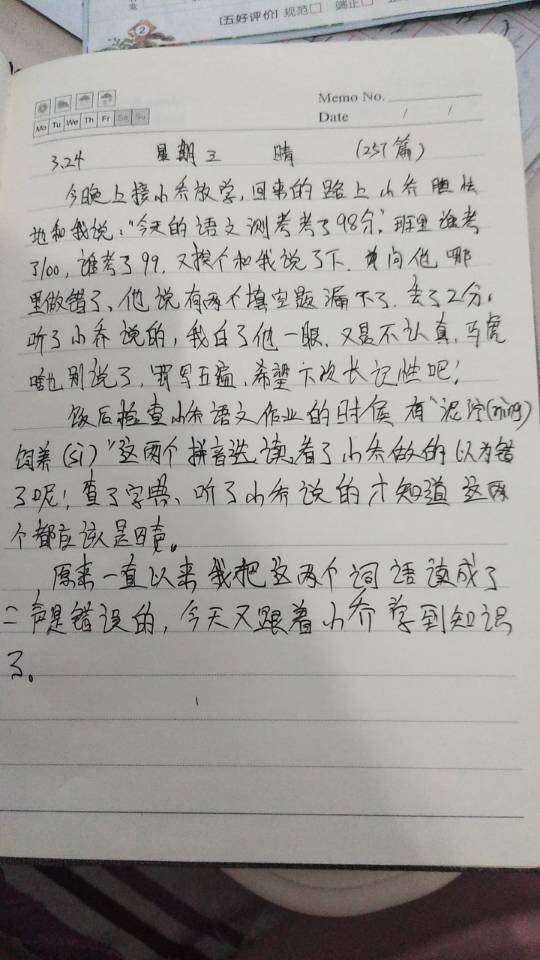 [五好评价] 规范□ 端正□
2
Memo No.
Date / /
Mo Tu We Th Fr Sa Su
3.24 星期三 晴 (257篇)
今晚上接小乔放学,回来的路上小乔胆怯
地和我说:"今天的语文测考考了98分"班里谁考
了100,谁考了99.又挨个和我说了下.我问他哪
里做错了、他说有两个填空题漏下了.丢了2分,
听了小乔说的,我白了他一眼.又是不认真,马虎
啥也别说了,罚写五遍,希望下次长记性吧!
饭后检查小乔语文作业的时候有"泥泞(nìng)
饲养(sì)"这两个拼音选读,看了小乔做的以为错
了呢!查了字典、听了小乔说的才知道这两
个都应该是四声。
原来一直以来我把这两个词语读成了
二声是错误的,今天又跟着小乔学到知识
了。